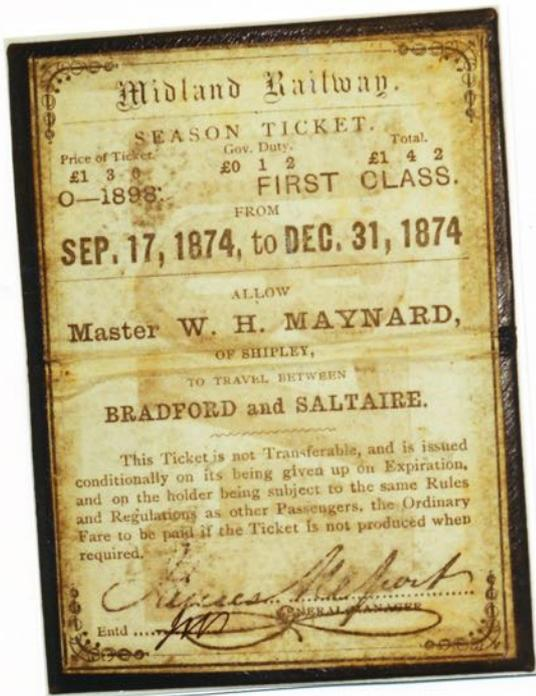 Midland Railway.
SEASON TICKET.
Price of Ticket. Gov. Duty. Total.
£1 3 0 £0 1 2 £1 4 2
O—1898. FIRST CLASS.
FROM
SEP. 17, 1874, to DEC. 31, 1874
ALLOW
Master W. H. MAYNARD,
OF SHIPLEY,
TO TRAVEL BETWEEN
BRADFORD and SALTAIRE.
This Ticket is not Transferable, and is issued
conditionally on its being given up on Expiration,
and on the holder being subject to the same Rules
and Regulations as other Passengers, the Ordinary
Fare to be paid if the Ticket is not produced when
required.
James Allport
GENERAL MANAGER
Entd